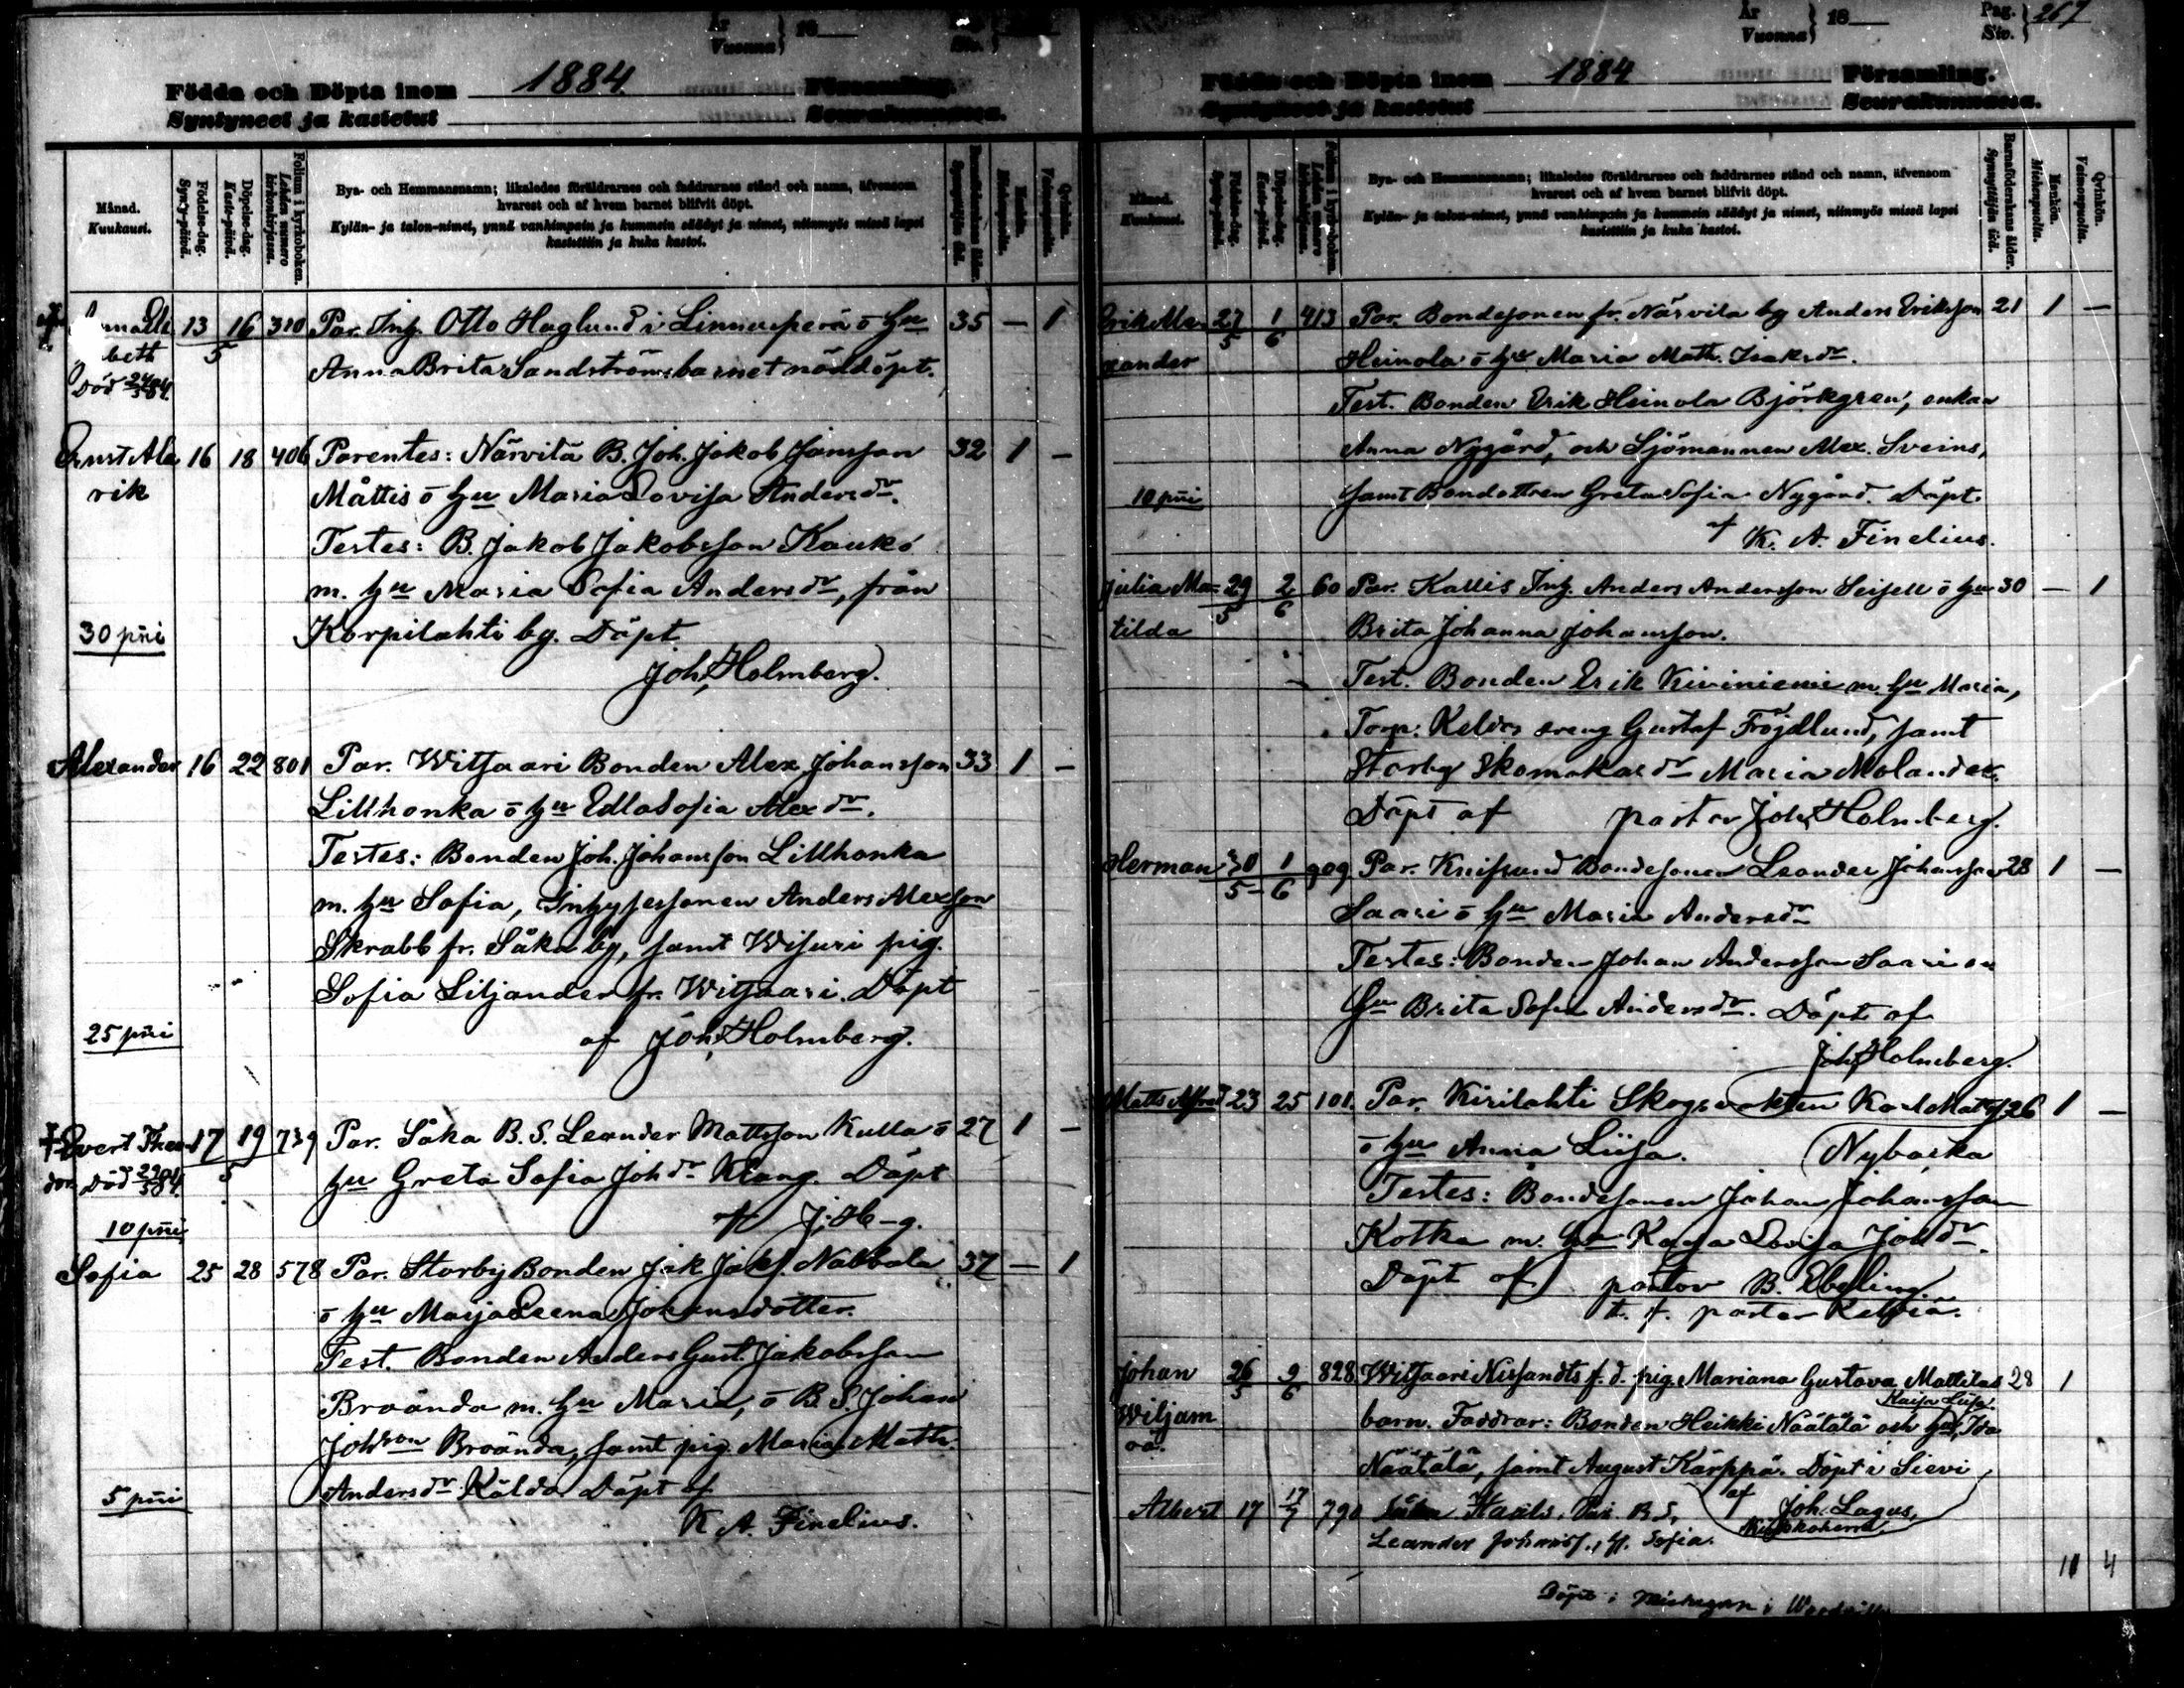 År
Vuonna } 18
Siv.
1884
Födda och Döpta inom Församling.
Syntyneet ja kastetut Seurakunnassa.
Månad.
Kuukausi.
Födelse-dag.
Synty-päivä.
Döpelse-dag.
Kaste-päivä.
Folium i kyrkoboken.
Lehden numero kirkonkirjassa.
Bya- och Hemmansnamn; likaledes föräldrarnes och faddrarnes stånd och namn, äfvensom
hvarest och af hvem barnet blifvit döpt.
Kylän- ja talon-nimet, ynnä vanhimpain ja kummein säädyt ja nimet, niinmyös missä lapsi
kastettiin ja kuka kastoi.
Barnaföderskans ålder.
Synnyttäjän ikä.
Mankön.
Miehenpuolia.
Qvinkön.
Vaimonpuolia.
13 16 310 Par. Inh. Otto Haglund i Linnunperä o hu 35 — 1
beth 5 Anna Brita Sandström barnet nöddöpt.
Död 24/5 84.
Ernst Ala 16 18 406 Parentes: Närvilä B. Joh. Jakob Jansson 32 1 —
rik Måttis o hu Maria Lovisa Andersdr.
Testes: B. Jakob Jakobsson Kauko
m. hu Maria Sofia Andersdr, från
30 pni Korpilahti by. Döpt
Joh. Holmberg.
Alexander 16 22 801 Par. Witsaari Bonden Alex Johansson 33 1 —
Lillhonka o hu Edla Sofia Alexdr.
Testes: Bonden Joh. Johansson Lillhonka
m. hu Sofia, Inhysessonen Anders Alexson
Skrabb fr. Såka by, samt Wisuri pig.
Sofia Liljander fr. Witsaari. Döpt
25 pni af Joh. Holmberg.
Evert Theo 17 19 739 Par. Såka B. S. Leander Mattsson Kulla o 27 1 —
dor Död 29/5 84. 5 hu Greta Sofia Johdr Klang. Döpt
10 pni af J. H—g.
Sofia 25 28 578 Par. Storby Bonden Jak. Jaks. Nabbala 37 — 1
o hu Maja Leena Johansdotter.
Test. Bonden Anders Gust. Jakobsson
Broända m. hu Maria, o B. S. Johan
Johsson Broända, samt pig. Maria Math.
5 pni Andersdr Kälda Döpt af
K. A. Finelius.
År
Vuonna } 18
Pag.
Siv. } 267
1884
Födda och Döpta inom Församling.
Syntyneet ja kastetut Seurakunnassa.
Månad.
Kuukausi.
Födelse-dag.
Synty-päivä.
Döpelse-dag.
Kaste-päivä.
Folium i kyrkoboken.
Lehden numero kirkonkirjassa.
Bya- och Hemmansnamn; likaledes föräldrarnes och faddrarnes stånd och namn, äfvensom
hvarest och af hvem barnet blifvit döpt.
Kylän- ja talon-nimet, ynnä vanhimpain ja kummein säädyt ja nimet, niinmyös missä lapsi
kastettiin ja kuka kastoi.
Barnaföderskans ålder.
Synnyttäjän ikä.
Mankön.
Miehenpuolia.
Qvinkön.
Vaimonpuolia.
Erik Alex 27/5 1/6 413 Par. Bondesonen fr. Närvilä by Anders Eriksson 21 1 —
xander Heinola o hu Maria Math. Isaksdr.
Test. Bonden Erik Heinola Björkgren, enkan
Anna Nygård, och Sjömannen Alex. Sveins,
10 pni samt Bondottren Greta Sofia Nygård. Döpt.
af K. A. Finelius.
Julia Ma- 29/5 2/6 60 Par. Kallis Inh. Anders Andersson Seisell o hu 30 — 1
tilda Brita Johanna Johansson.
Test. Bonden Erik Kiviniemi m. hu Maria,
Torp. Keldos dreng Gustaf Fröjdlund, samt
Storby Skomakardr Maria Molander.
Döpt af pastor Joh. Holmberg.
Herman 30/5 1/6 909 Par. Knifsund Bondesonen Leander Johansson 28 1 —
Saari o hu Maria Andersdr
Testes: Bonden Johan Andersson Saari o
hu Brita Sofia Andersdr. Döpt af
Joh. Holmberg.
Matts Alfred 23 25 101. Par. Kirilahti Skogsvakten Karl Matss 26 1 —
o hu Anna Liisa. Nybacka
Testes: Bondesonen Johan Johansson
Kotka m. hu Kajsa Lovisa Johdr.
Döpt af pastor B. Ebeling.
t. f. pastor Kelviå.
Johan 26/5 2/6 828 Witsaari Nissandts f. d. pig. Mariana Gustava Mattilas 28 1
Kaisa Liisa
Wiljam barn. Faddrar: Bonden Heikki Näätälä och hu, Ida
oä. Näätälä, samt August Kärppä. Döpt i Sievi
af Joh. Lagus,
Kyrkoherre.
Albert 17 17/7 790 Par. B. S.
Leander Johanss., H. Sofia.
11 4
Döpt i Michigan i